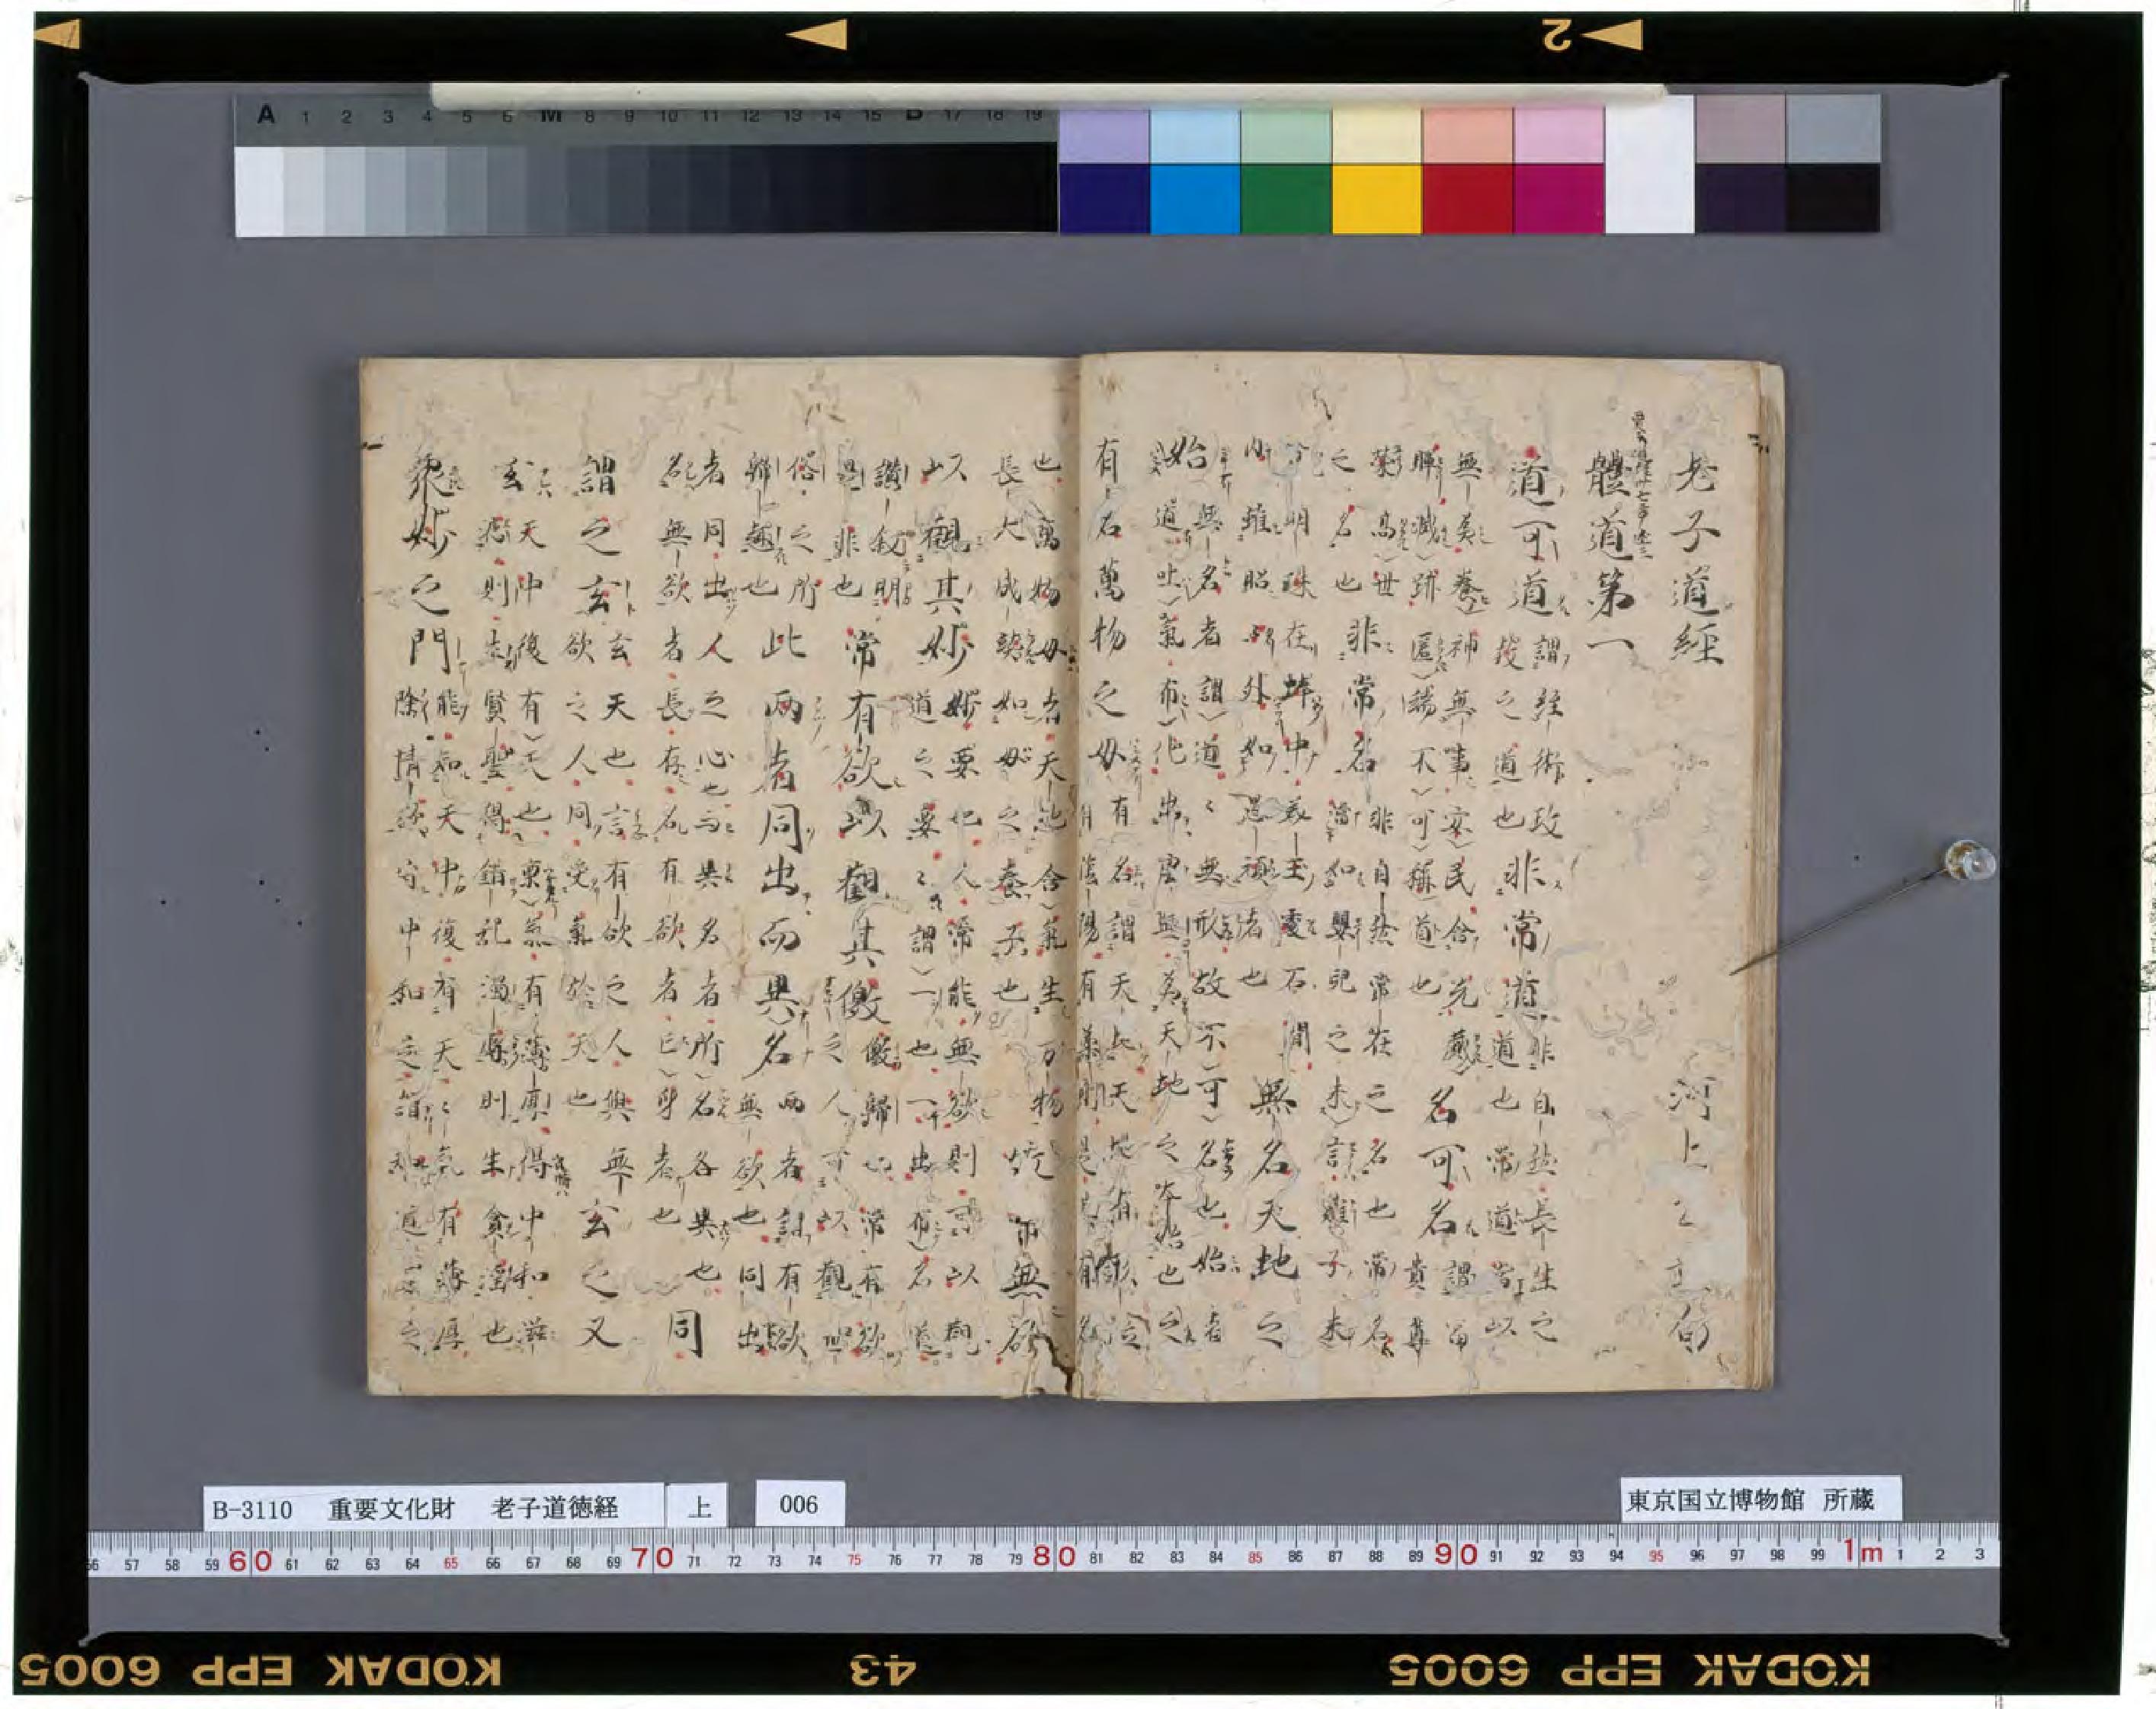 老子道経 河上公章句
體道第一
道可道
謂経術政
教之道也
非常道
非自然長生之
道也常道當以
無為養神無事安民含光藏
暉滅跡匿端不可稱道也
名可名
謂富
貴尊
榮高世
之名也
非常名
非自然常在之名也常名
當如嬰兒之未言雞子未
分明珠在蚌中美玉處石間
内雖昭〻外如愚頑者也
無名天地之
始
無名者謂道〻無形故不可名也始者
道吐氣布化出虛無為天地之本始也
有名萬物之母
有名謂天地天地有形位
有陰陽有柔剛是其有名
也萬物母者天地含氣生万物
長大成熟如母之養子也
故常無欲
以觀其妙
妙要也人常能無欲則可以觀
道之要〻謂一也一出布名道
讃叙明
是非也
常有欲以觀其徼
徼歸也常有欲
之人可以觀世
俗之所
歸趣也
此兩者同出而異名
兩者謂有欲
無欲也同出
者同出人之心也与異名者所名各異也
欲無欲者長存名有欲者亡身者也
同
謂之玄
玄天也言有欲之人與無
欲之人同受氣於天也
玄之又
玄
天中復有天也稟氣有薄厚得中和滋
液則生賢聖得錯乱濁辱則生貪淫也
衆妙之門
能知天中復有天〻氣有薄厚
除情欲守中和是謂知道要之
B-3110 重要文化財 老子道徳経
上
006
東京国立博物館 所蔵
KODAK EPP 6005
43
KODAK EPP 6005
2